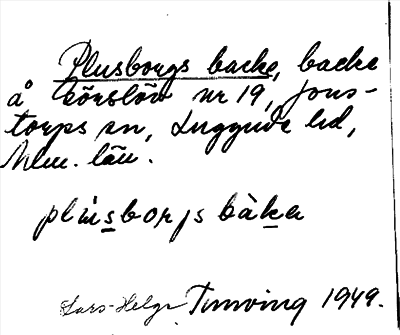 Plusborgs backe, backe
å Görslöv nr 19, Jons-
torps sn, Luggude hd,
Mlm. län.
plùsborjs bàka
Lars-Helge Tunving 1949.